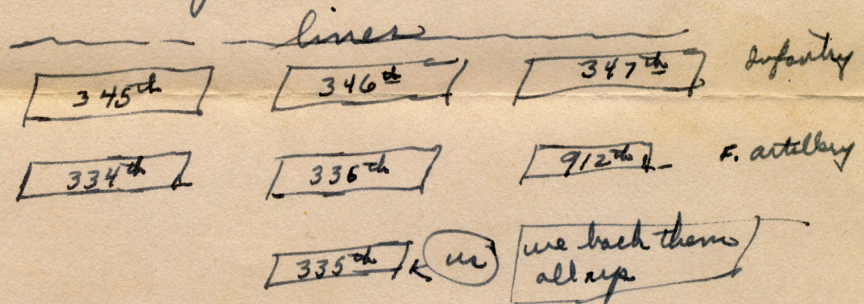 lines
345th 346th 347th Infantry
334th 336th 912th F. artillery
335th us we back them
all up